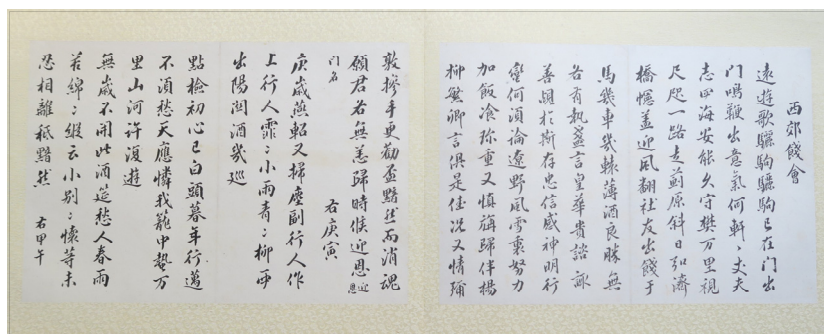 西郊餞會
遠遊歌驪駒驪駒已在門出
門鳴鞭出意氣何軒〻丈夫
志四海安能久守樊万里視
尺咫一路走薊原斜日弘濟
橋幰蓋迎風翻社友出餞于
馬幾車幾轅薄酒良勝無
各有執盞言皇華貴諮諏
善於斯存忠信感神明行
蠻何須論遼野風雪裏努力
加飯飡珎重又慎旃歸伴楊
柳繁卿言俱是佳況又情彌
敦摻手更勸盃黯然而消魂
願君無恙歸時候迎恩迎恩
門名 右庚寅
庚歲燕軺又掃塵副行人作
上行人霏〻小雨青〻柳西
出陽関酒幾巡
點檢初心已白頭暮年行邁
不須愁天應憐我籠中蟄万
里山河許復遊
無歲不開此酒筵愁人春雨
若綿〻縱云小別〻懷等未
忍相離秪黯然 右甲午